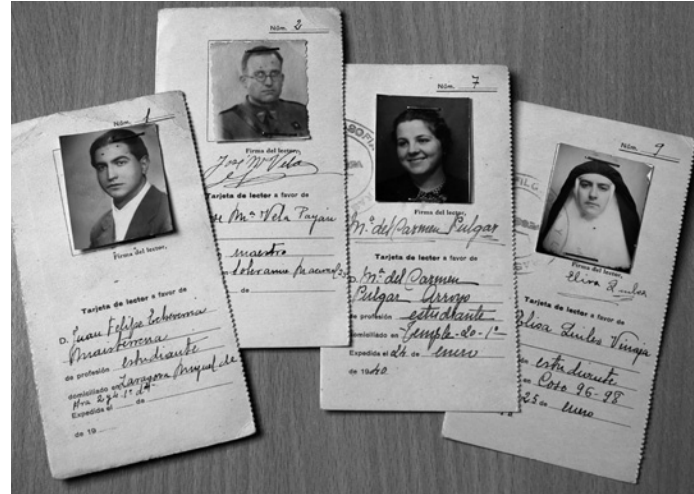 Núm. 1
Firma del lector,
Tarjeta de lector a favor de
D. Juan Felipe Echeverria
de profesión estudiante
domiciliado en Zaragoza Miguel de
Ara 24 1º
Expedida el de
de 19
Núm. 2
Firma del lector,
José Mª Vela
Tarjeta de lector a favor de
Mª Vela Payán
maestro
de
Núm. 7
Firma del lector,
Mª del Carmen Pulgar
Tarjeta de lector a favor de
Mª del Carmen
Pulgar Arroyo
de profesión estudiante
domiciliado en Temple-20-1º
Expedida el 24 de enero
de 1940
Núm. 9
Firma del lector,
Elisa
Tarjeta de lector a favor de
Elisa
estudiante
en Coso 96-98
25 de enero